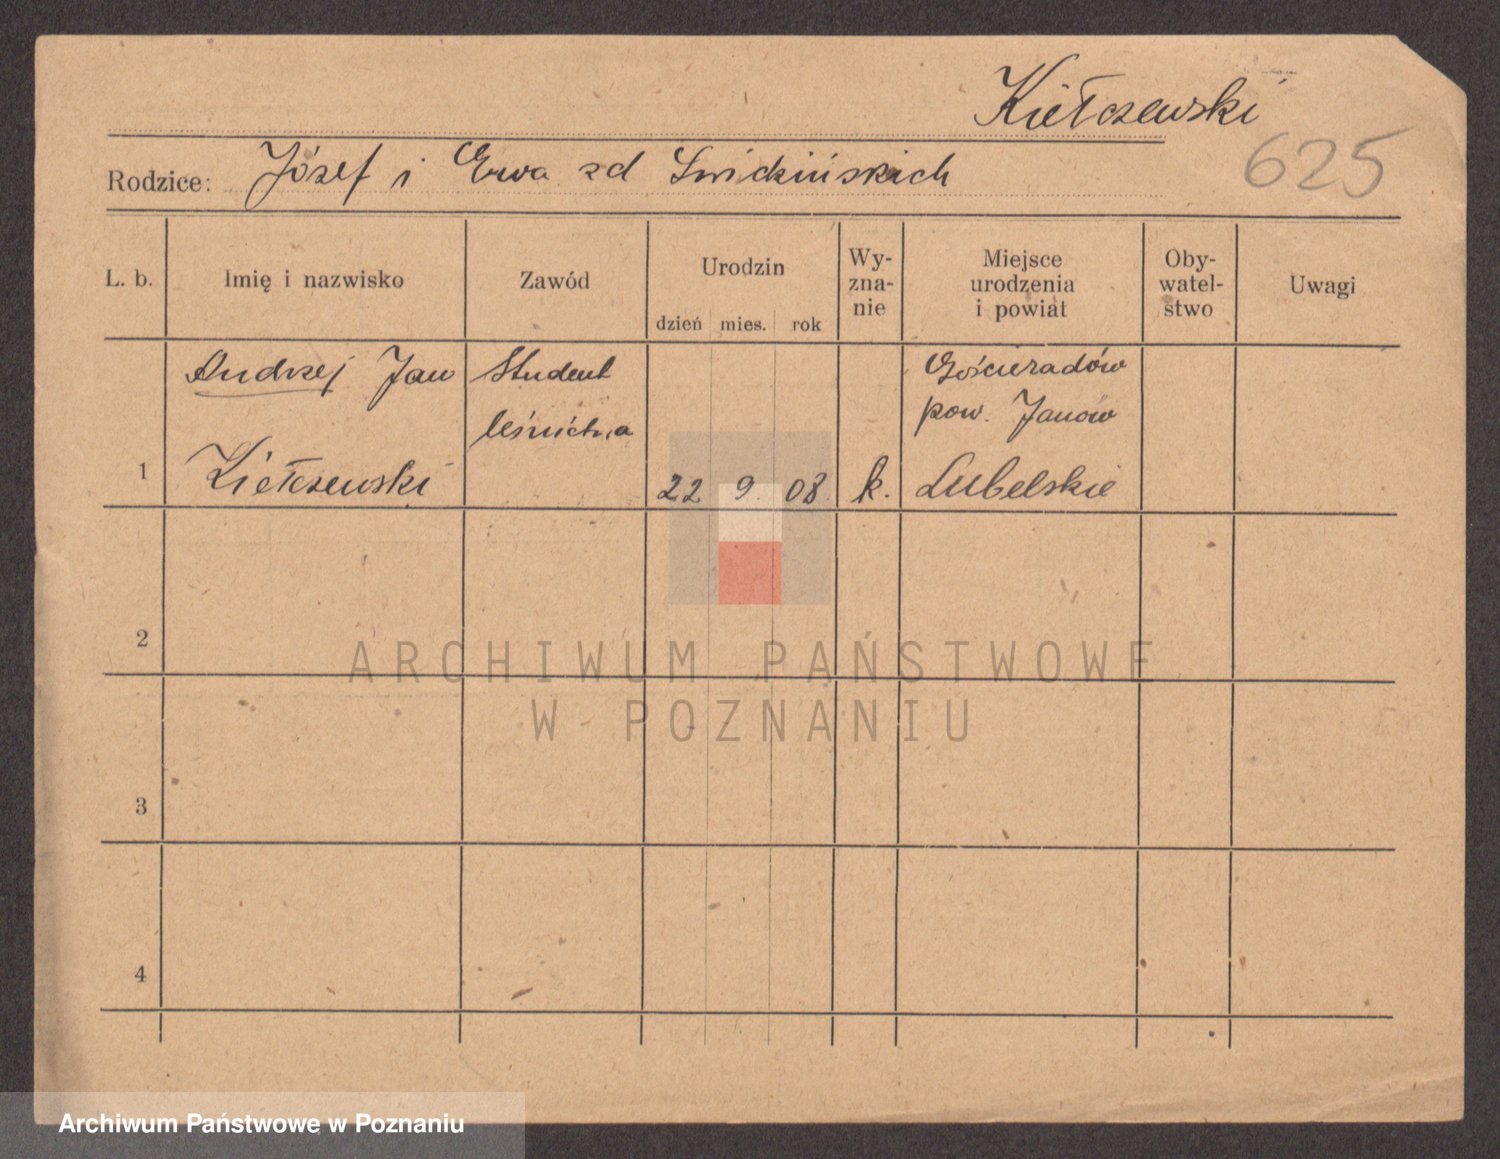 Kiełczewski
625
Rodzice: Józef i Ewa zd Świdzińskich
L. b.
Imię i nazwisko
Zawód
Urodzin
dzień mies. rok
Wy-
zna-
nie
Miejsce
urodzenia
i powiat
Oby-
watel-
stwo
Uwagi
1
Andrzej Jan
Kiełczewski
Student
leśnictwa
22 9. 08.
k.
Gościeradów
pow. Janów
Lubelskie
2
3
4
ARCHIWUM PAŃSTWOWE
W POZNANIU
Archiwum Państwowe w Poznaniu